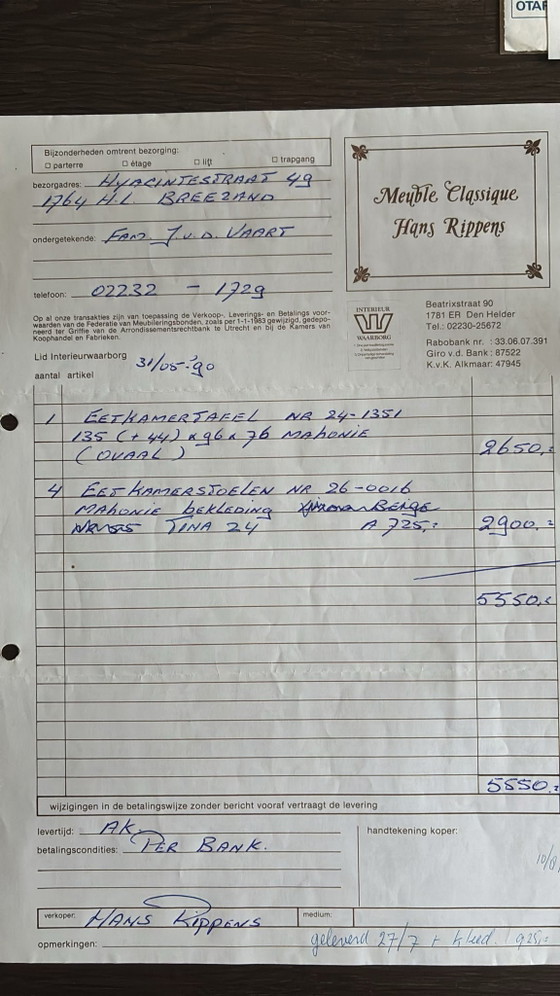 OTAF
Bijzonderheden omtrent bezorging:
parterre étage lift trapgang
bezorgadres: HYACINTESTRAAT 49
1764 H.L. BREEZAND
ondergetekende: FAM. J.v.d. VAART
telefoon: 02232 - 1729
Meuble Classique
Hans Rippens
Op al onze transakties zijn van toepassing de Verkoop-, Leverings- en Betalings voor-
waarden van de Federatie van Meubileringsbonden, zoals per 1-1-1983 gewijzigd, gedepo-
neerd ter Griffie van de Arrondissementsrechtbank te Utrecht en bij de Kamers van
Koophandel en Fabrieken.
INTERIEUR
WAARBORG
Beatrixstraat 90
1781 ER Den Helder
Tel.: 02230-25672
Rabobank nr. : 33.06.07.391
Giro v.d. Bank : 87522
K.v.K. Alkmaar: 47945
Lid Interieurwaarborg 31/05-'90
aantal artikel
1 EETKAMERTAFEL NR 24-1351
135 (+44) x 96 x 76 MAHONIE
(OVAAL) 2650,=
4 EETKAMERSTOELEN NR 26-0016
MAHONIE BEKLEDING BEIGE
TINA 24 A 725,= 2900,=
5550,=
5550,=
wijzigingen in de betalingswijze zonder bericht vooraf vertraagt de levering
levertijd: AK.
betalingscondities: PER BANK.
handtekening koper:
10/8
verkoper: HANS RIPPENS medium:
opmerkingen: geleverd 27/7 + kleed. 925,=